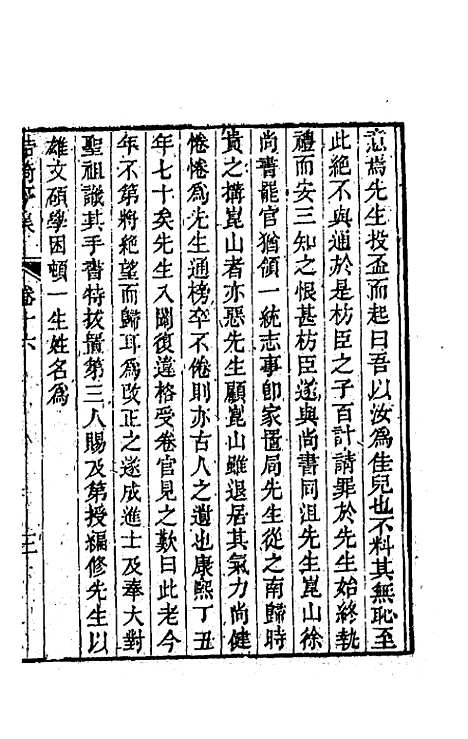 意焉先生投盃而起曰吾以汝爲佳兒也不料其無恥至
此絶不與通於是枋臣之子百計請罪於先生始終執
禮而安三知之恨甚枋臣遂與尚書同沮先生崑山徐
尚書罷官猶領一統志事卽家置局先生從之南歸時
貴之搆崑山者亦惡先生顧崑山雖退居其氣力尚健
惓惓爲先生通榜卒不倦則亦古人之遺也康熙丁丑
年七十矣先生入闈復違格受卷官見之歎曰此老今
年不第將絶望而歸耳爲改正之遂成進士及奉大對
聖祖識其手書特拔置第三人賜及第授編修先生以
雄文碩學困頓一生姓名爲
鮚埼亭集
卷十六